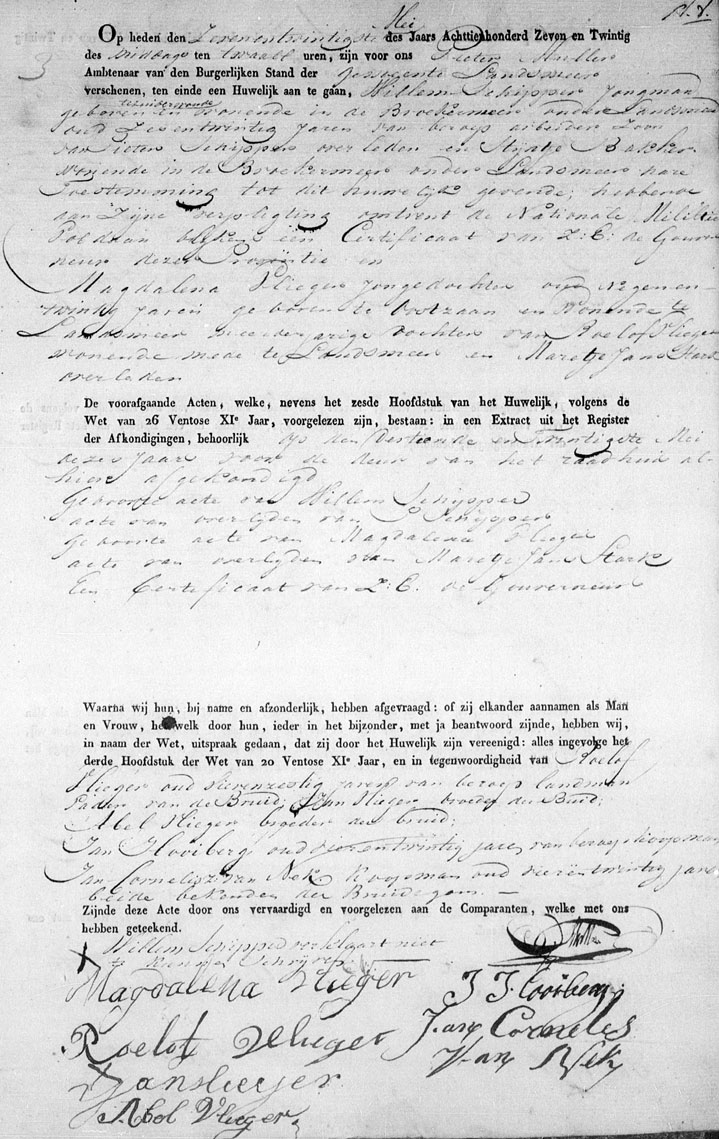 Mei
Op heden den Zevenentwintigste des Jaars Achttienhonderd Zeven en Twintig
des Middags ten twaalf uren, zijn voor ons Pieter Muller
3
Ambtenaar van den Burgerlijken Stand der gemeente Landsmeer
verschenen, ten einde een Huwelijk aan te gaan, Willem Schipper Jongman
geboren en wonende in de Broekermeer onder Landsmeer
oud Zesentwintig Jaren van beroep arbeider Zoon
van Pieter Schipper overleden en Bakker
wonende in de Broekermeer onder Landsmeer hare
toestemming tot dit huwelijk gevende; hebbende
aan Zijne verpligting omtrent de Nationale Militie
Voldaan blijkens een Certificaat van Z: E: de Gouver
neur dezer Provintie en
Magdalena Vlieger Jongedochter oud Negenen
twintig Jaren geboren te Oostzaan en wonende te
Landsmeer meerderjarige dochter van Roelof Vlieger
wonende mede te Landsmeer en Maretje Jans Stark
overleden
De voorafgaande Acten, welke, nevens het zesde Hoofdstuk van het Huwelijk, volgens de
Wet van 26 Ventose XIe Jaar, voorgelezen zijn, bestaan: in een Extract uit het Register
der Afkondigingen, behoorlijk op den Dertiende en Twintigste Mei
dezes Jaars voor de deur van het raadhuis al-
hier afgekondigd
Geboorte acte van Willem Schipper
acte van overlyden van P Schipper
geboorte acte van Magdalena Vlieger
acte van overlyden van Maretje Jans Stark
Een Certificaat van Z: E: de Gouverneur
Waarna wij hun, bij name en afzonderlijk, hebben afgevraagd: of zij elkander aannamen als Man
en Vrouw, hetwelk door hun, ieder in het bijzonder, met ja beantwoord zijnde, hebben wij,
in naam der Wet, uitspraak gedaan, dat zij door het Huwelijk zijn vereenigd: alles ingevolge het
derde Hoofdstuk der Wet van 20 Ventose XIe Jaar, en in tegenwoordigheid van Roelof
Vlieger oud vierenzestig jaren van beroep landman
Vader van de Bruid, Jan Vlieger broeder der Bruid;
Abel Vlieger broeder der bruid;
Jan Hooiberg oud vierentwintig jaren van beroep koopman
Jan Cornelisz van Nek Koopman oud vierentwintig jaren
beide bekenden der Bruidegom. —
Zijnde deze Acte door ons vervaardigd en voorgelezen aan de Comparanten, welke met ons
hebben geteekend.
Willem Schipper verklaart niet
te kunnen Schrijven
Magdalena Vlieger
J Hooiberg
Roelof Vlieger
Jan Corneles
Van Nek
Jan Slieger
Abel Vlieger